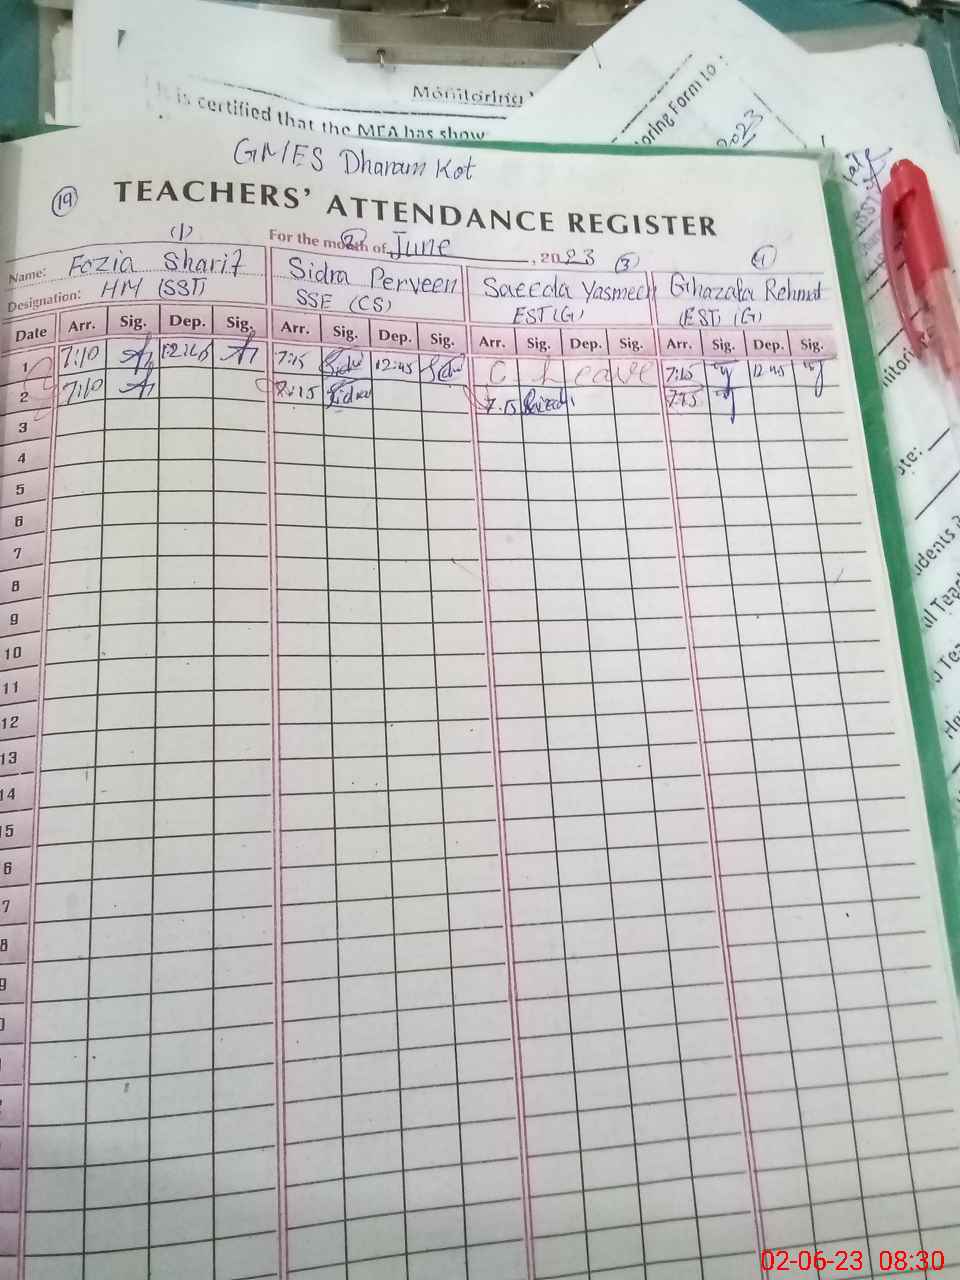 Monitoring
is certified that the MEA has show
oring Form to
2023
GMES Dharam Kot
19
TEACHERS' ATTENDANCE REGISTER
For the month of June, 2023
(1) (2) (3) (4)
Name: Fozia Sharif Sidra Perveen Saeeda Yasmeen Ghazala Rehmat
Designation: HM (SST) SSE (CS) EST(G) (EST) (G)
Date Arr. Sig. Dep. Sig. Arr. Sig. Dep. Sig. Arr. Sig. Dep. Sig. Arr. Sig. Dep. Sig.
1 7:10 12:45 7:15 12:45 C. Leave 7:15 12:45
2 7:10 7:15 Sidra 7.15 7:15
3
4
5
6
7
8
9
10
11
12
13
14
15
6
7
8
9
0
ote:
udents
al Teac
02-06-23 08:30